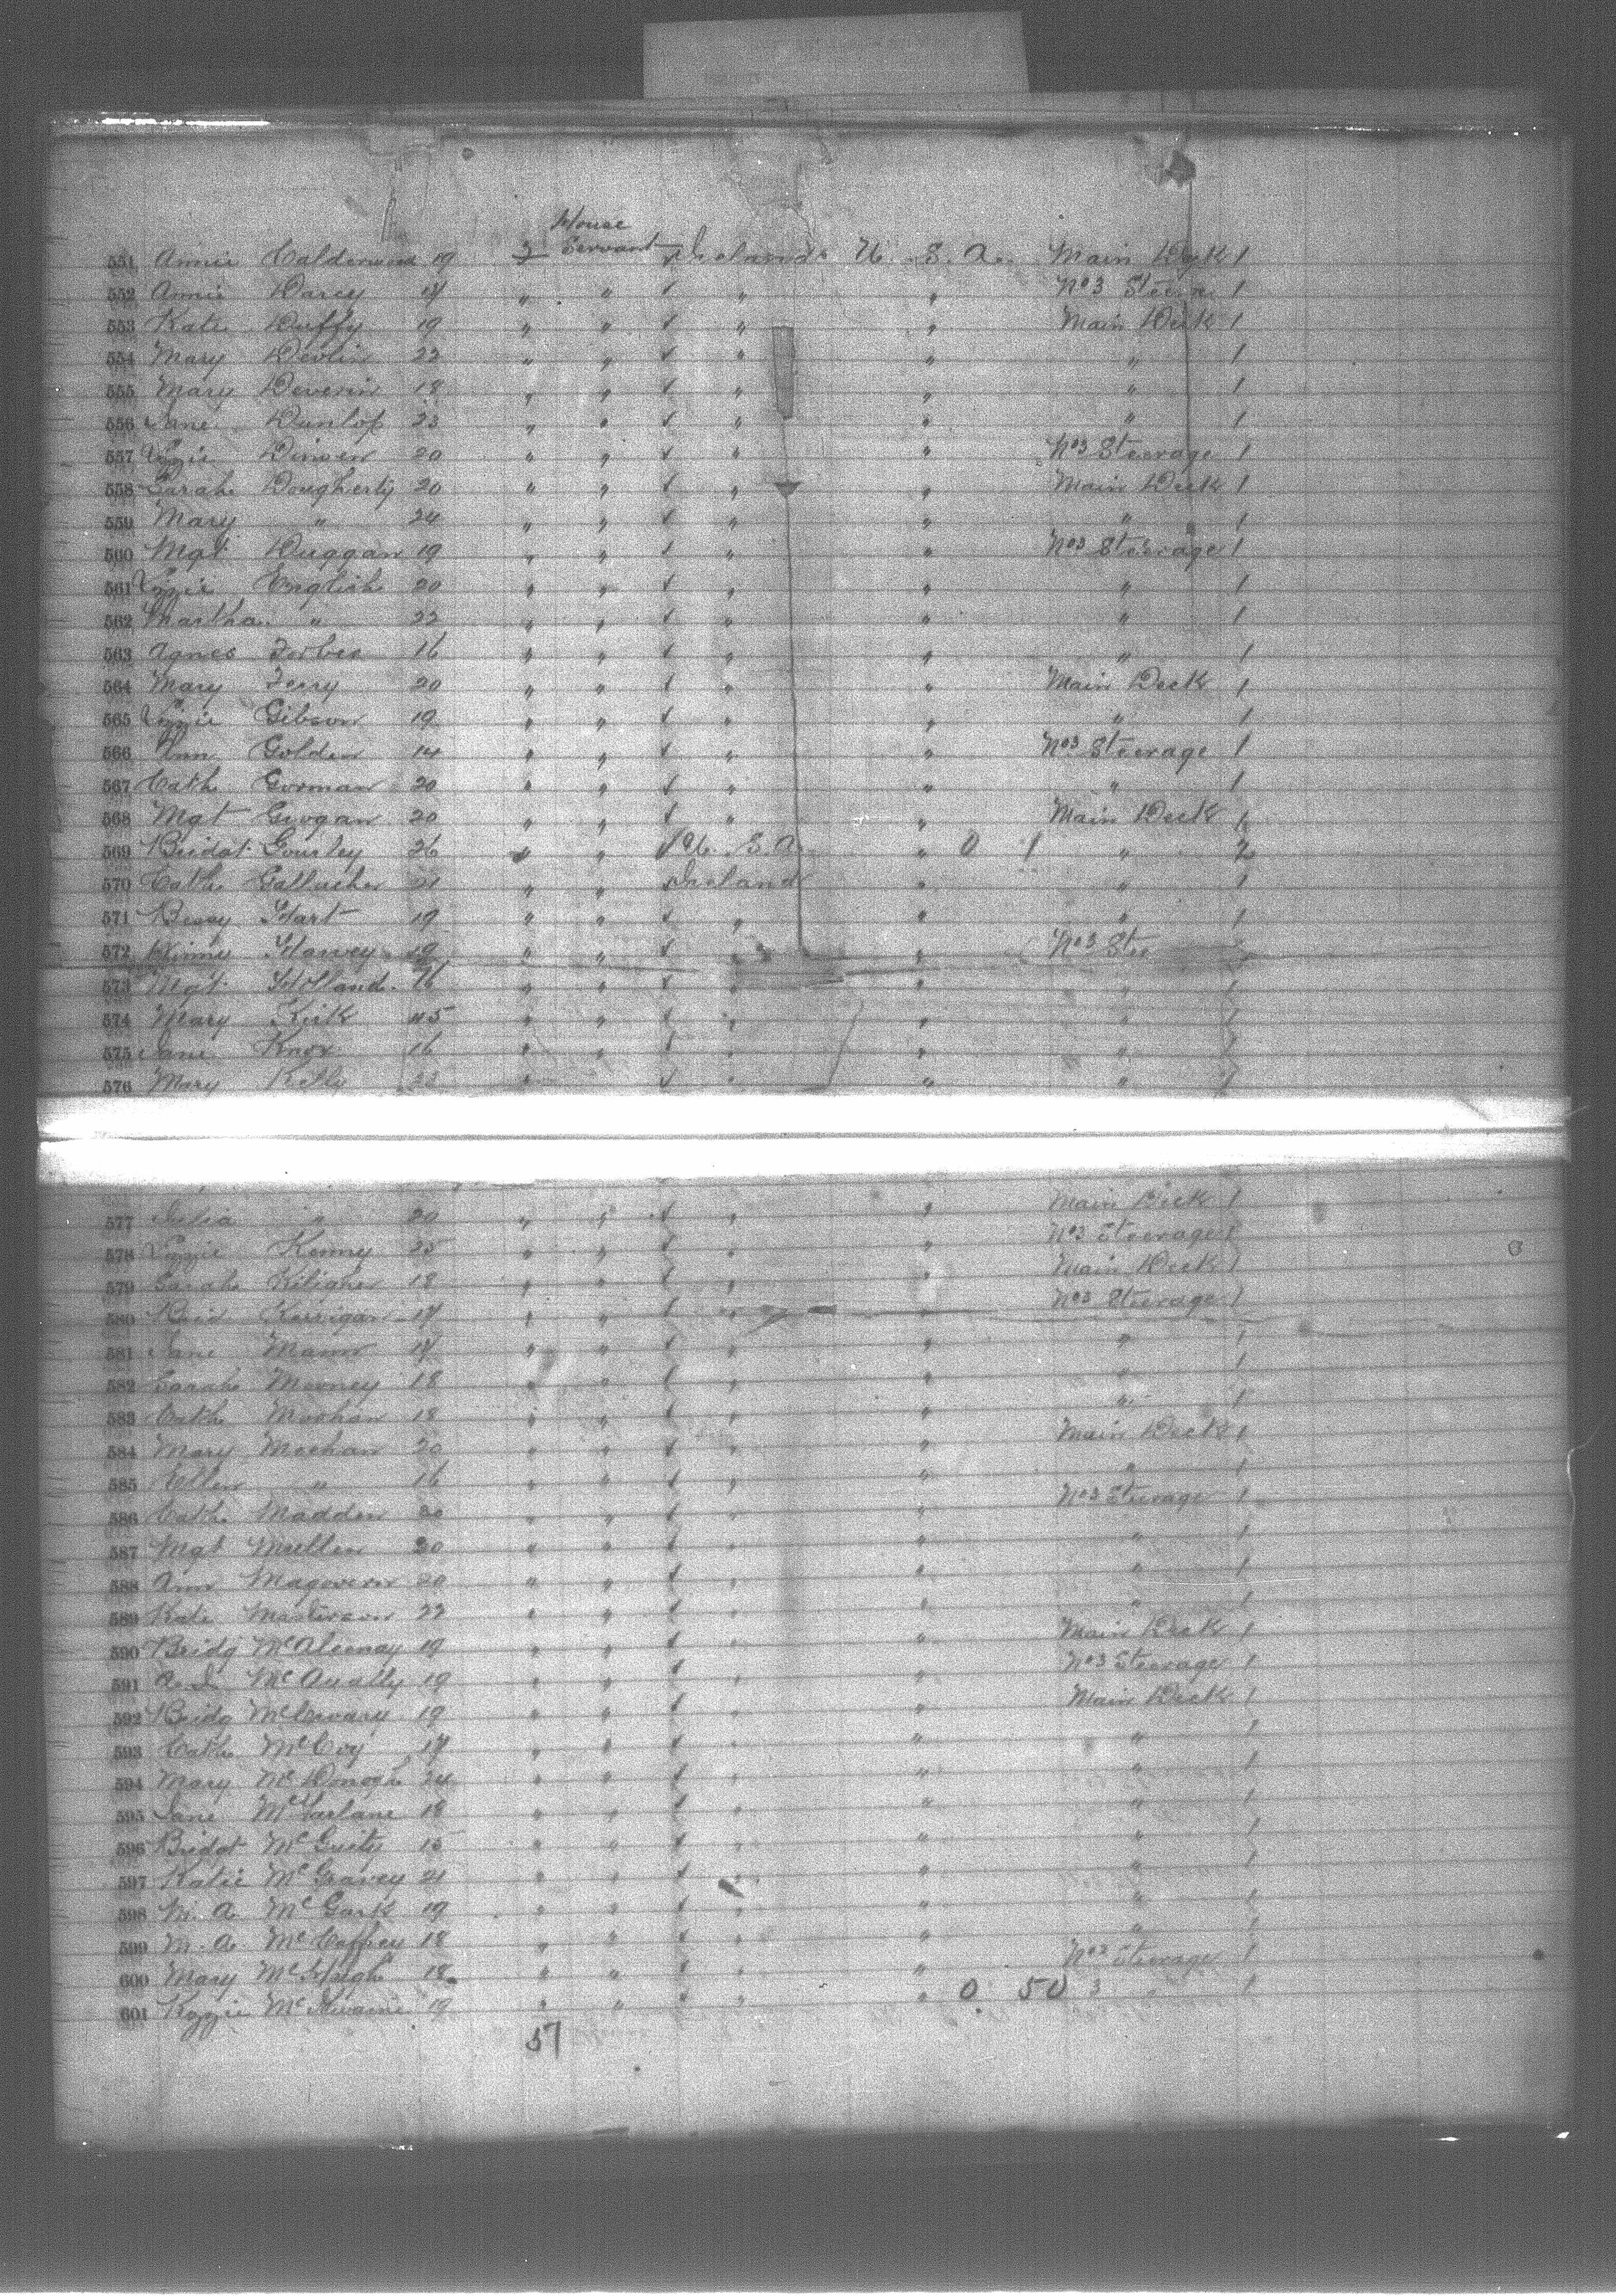 House
551 Annie Calderwood 19 f Servant Ireland U. S. A. Main Deck 1
552 Annie Darcy 17 " " " " No 3 Steerage 1
553 Kate Duffy 19 " " " " Main Deck 1
554 Mary Devlin 22 " " " " " 1
555 Mary Deverin 18 " " " " 1
556 Jane Dunlop 23 " " " " " 1
557 Lizzie Dinsen 20 " " " " No 3 Steerage 1
558 Sarah Dougherty 20 " " " " Main Deck 1
559 Mary " 24 " " " " " 1
560 Mgt Duggan 19 " " " " No 3 Steerage 1
561 Lizzie English 20 " " " " " 1
562 Martha " 22 " " " " " 1
563 Agnes Forbes 16 " " " " " 1
564 Mary Ferry 20 " " " " Main Deck 1
565 Lizzie Gibson 19 " " " " " 1
566 Ann Golden 14 " " " " No 3 Steerage 1
567 Cath Gorman 20 " " " " " 1
568 Mgt Grogan 20 " " " " Main Deck 1
569 Bridgt Gourley 26 " " U. S. A. " 0 1 " 2
570 Cath Gallacher 21 " " Ireland " " 1
571 Bessy Hart 19 " " " " " 1
572 Harvey 19 " " " " No 3 Ste
573 Mgt Holland 16 " " " " " 1
574 Mary Kirk 45 " " " " " 1
575 Jane Knox 16 " " " " " 1
576 Mary Kelly 22 " " " " " 1
577 Julia " 20 " " " " Main Deck 1
578 Lizzie Kenny 25 " " " " No 3 Steerage 1
579 Sarah Kiligher 18 " " " " Main Deck 1
580 Brid Kerrigan 17 " " " " No 3 Steerage 1
581 Jane Mann 17 " " " " " 1
582 Sarah Mooney 18 " " " " " 1
583 Cath Moohan 18 " " " " " 1
584 Mary Meehan 20 " " " " Main Deck 1
585 Ellen " 16 " " " " " 1
586 Cath Madden 20 " " " " No 3 Steerage 1
587 Mgt Mullen 20 " " " " " 1
588 Ann Magovern 20 " " " " " 1
589 Kate Masterson 22 " " " " " 1
590 Bridg McAleenay 19 " " " " Main Deck 1
591 McAnally 19 " " " " No 3 Steerage 1
592 Bridg 19 " " " " Main Deck 1
593 Cath McCoy 17 " " " " " 1
594 Mary McDonogh 24 " " " " " 1
595 Jane McFarlane 18 " " " " " 1
596 Bridgt 15 " " " " " 1
597 Katie McGravey 21 " " " " " 1
598 M. A. McGurk 19 " " " " " 1
599 M. A. McCaffrey 18 " " " " " 1
600 Mary McHugh 18 " " " " No 3 Steerage 1
601 19 " " " " 0 50 3 " 1
51